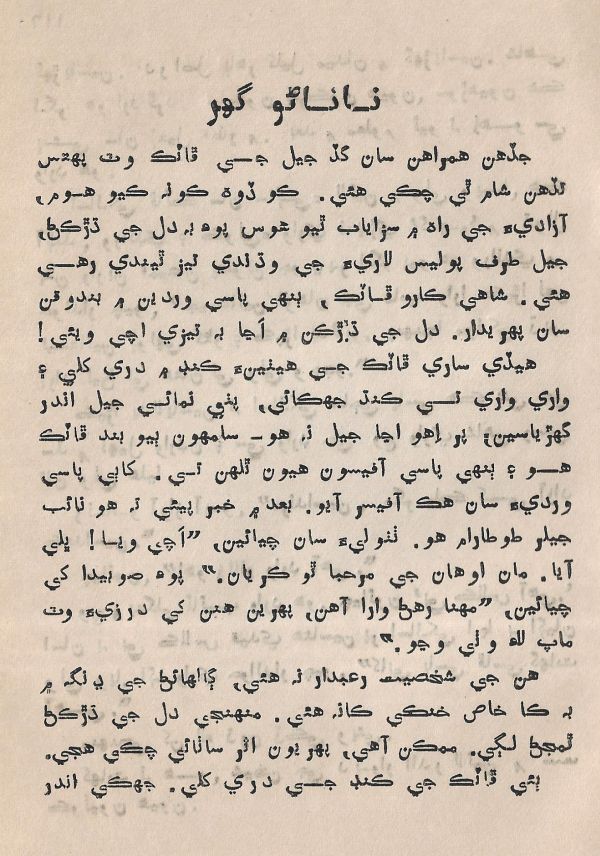 ناناڻو گھر
جڏهن همراهن سان گڏ جيل جي ڦاٽڪ وٽ پهتس
تڏهن شام ٿي چڪي هئي. ڪو ڏوهه ڪونه ڪيو هوم،
آزاديءَ جي راهه ۾ سزاياب ٿيو هوس پوءِ به دل جي ڌڙڪڻ،
جيل طرف پوليس لاريءَ جي وڌندي تيز ٿيندي رهي
هئي. شاهي ڪارو ڦاٽڪ، ٻنهي پاسي وردين ۾ بندوقن
سان پهريدار. دل جي ڌڙڪن ۾ اَڃا به تيزي اچي ويئي!
هيڏي ساري ڦاٽڪ جي هيٺينءَ ڪنڊ ۾ دري کلي ۽
واري واري سي ڪنڌ جھڪائي، پٺي نمائي جيل اندر
گھڙياسين؛ پر اِهو اڃا جيل نه هو۔ سامهون ٻيو بند ڦاٽڪ
هو ۽ ٻنهي پاسي آفيسون هيون ٿلهن تي. کاٻي پاسي
ورديءَ سان هڪ آفيسر آيو. بعد ۾ خبر پيئي ته هو نائب
جيلر طوطارام هو. ٺٺوليءَ سان چيائين، ”اَچي ويا! ڀلي
آيا. مان اوهان جي مرحبا ٿو ڪريان.“ پوءِ صوبيدا کي
چيائين، ”مهنا رهڻ وارا آهن، پهرين هنن کي درزيءَ وٽ
ماپ لاءِ وٺي وڃو.“
هن جي شخصيت رعبدار نه هئي، ڳالهائڻ جي ڍنگ ۾
به ڪا خاص خنڪي ڪانه هئي. منهنجي دل جي ڌڙڪڻ
ٿمجڻ لڳي. ممڪن آهي، پهريون اثر سانائي چڪي هجي.
ٻئي ڦاٽڪ جي ڪنڊ جي دري کلي. جھڪي اندر